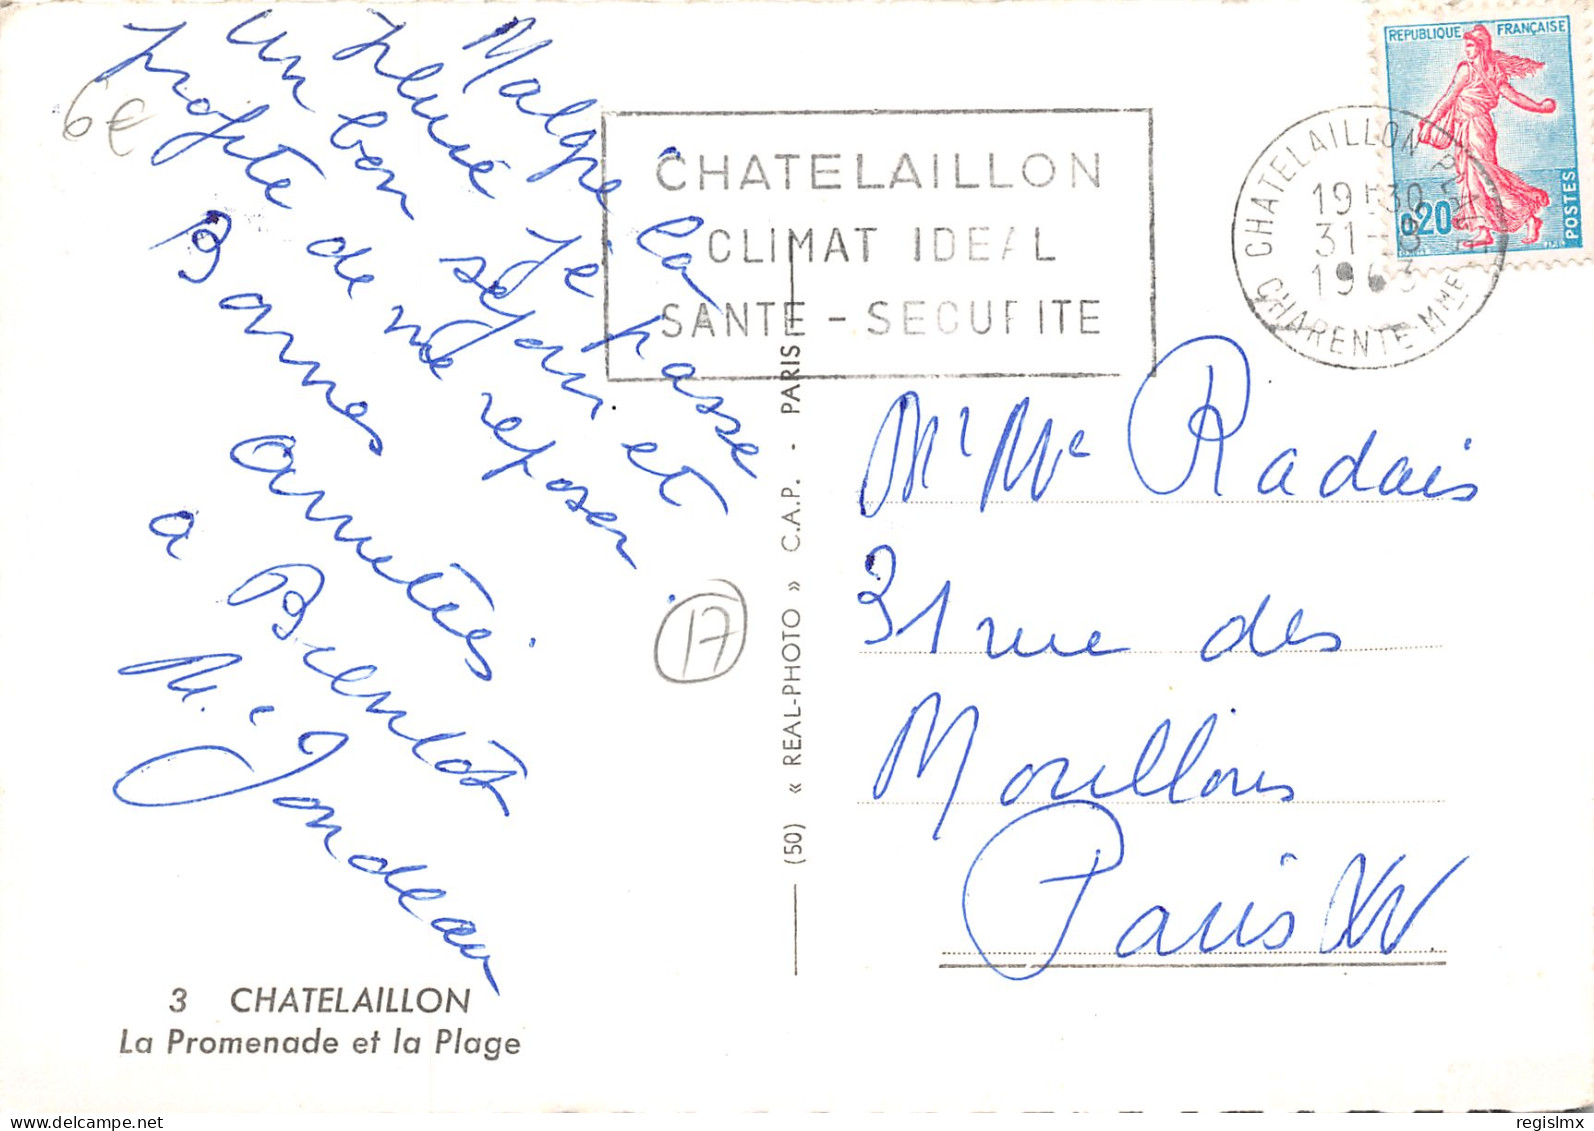 Malgré la
pluie je passe
un bon séjour et
profite de me reposer.
Bonnes
amitiés.
a Bientôt
M.e Jondeau
6€
17
3 CHATELAILLON
La Promenade et la Plage
(50) « REAL-PHOTO » C.A.P. - PARIS
CHATELAILLON
CLIMAT IDEAL
SANTE - SECURITE
CHATELAILLON PLAGE
19H30
31-
1963
CHARENTE MME
REPUBLIQUE FRANÇAISE
0,20
POSTES
Mr Me Radais
31 rue des
Morillons
Paris XV.
regislmx